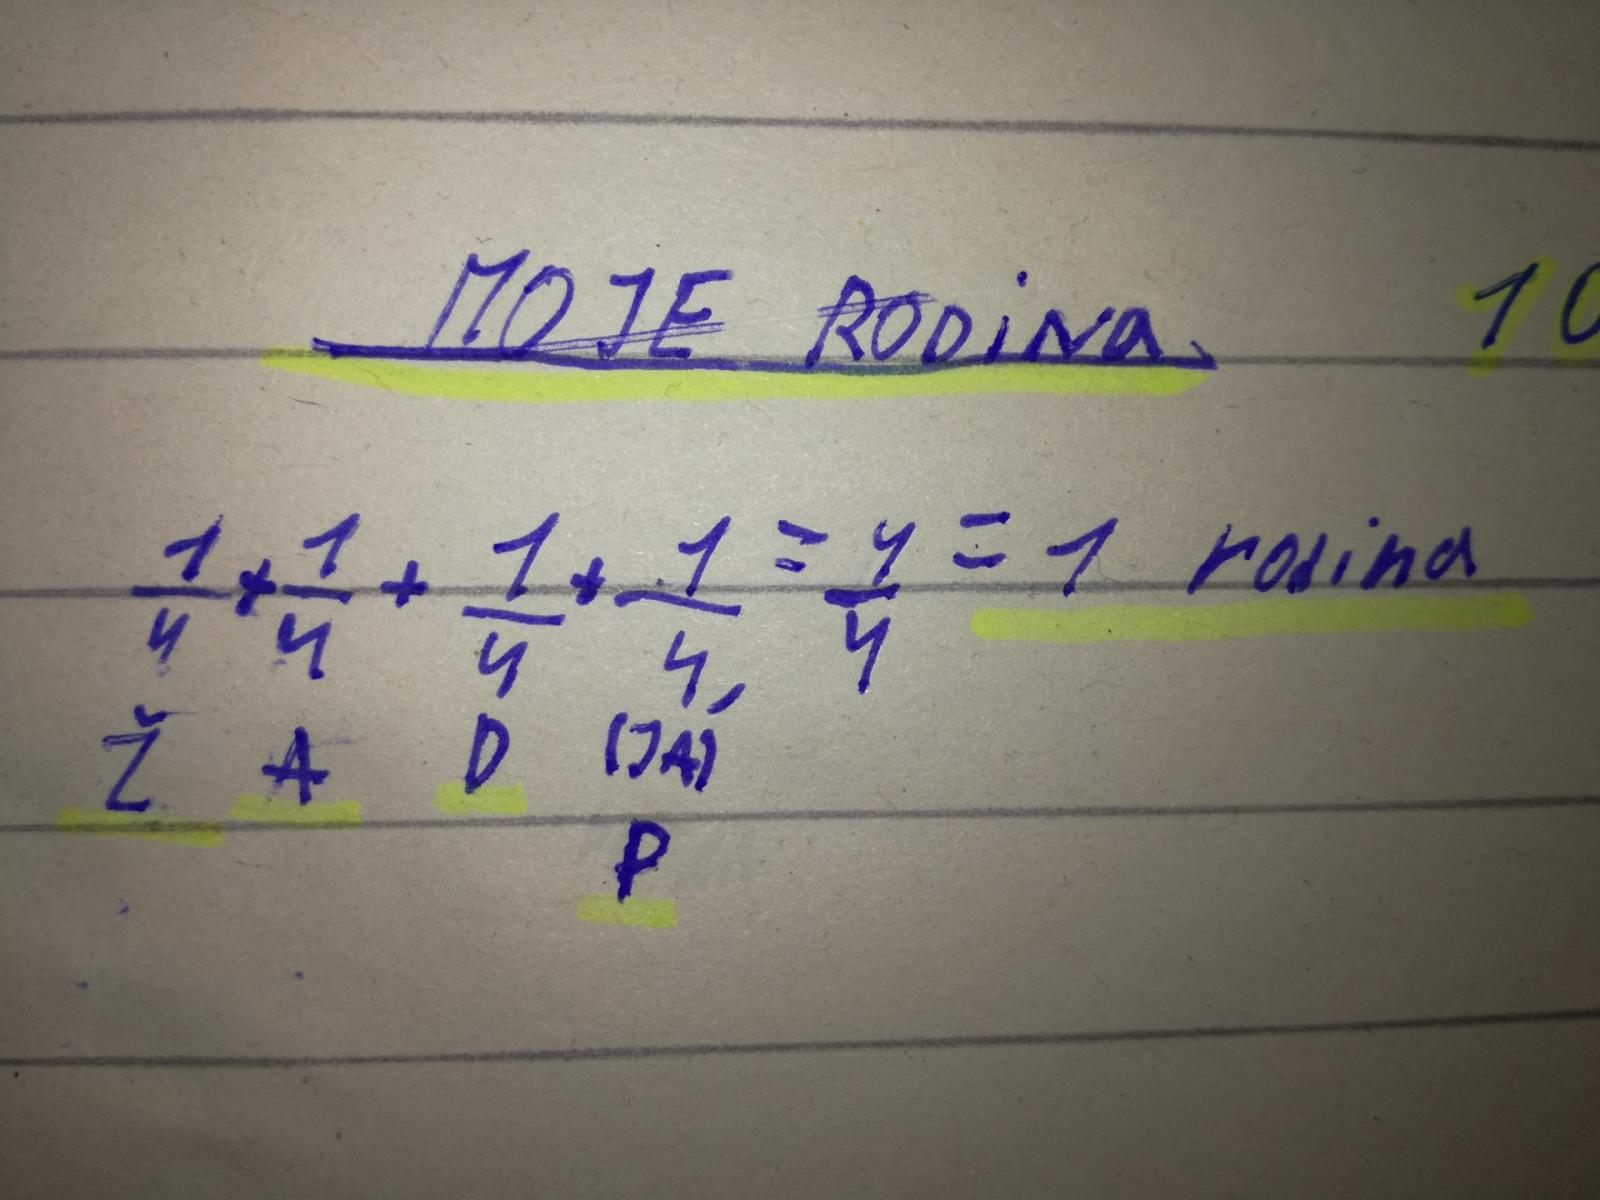 MOJE RODINA 10
1/4 + 1/4 + 1/4 + 1/4 = 4/4 = 1 rodina
Ž A D (JÁ)
P